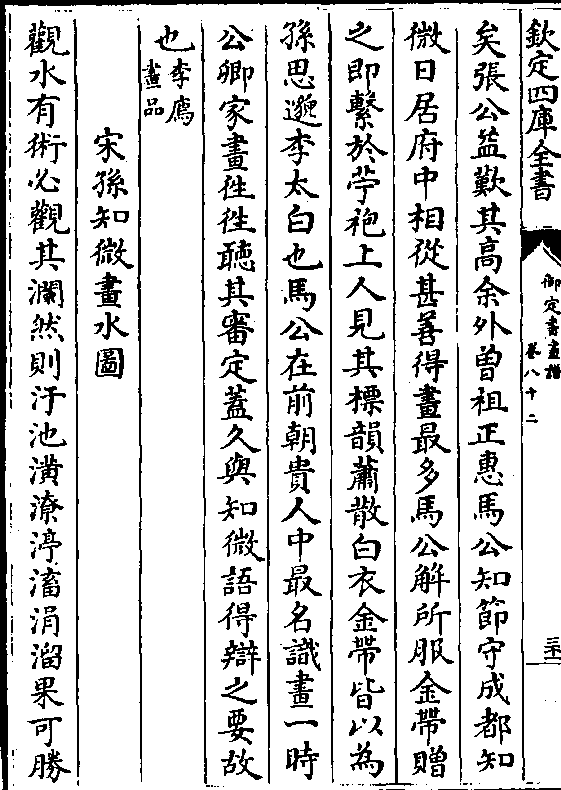 欽定四庫全書
御定書畫譜
卷八十二
三十一
矣張公益歎其高余外曾祖正惠馬公知節守成都知
微日居府中相從甚善得畫最多馬公解所服金帶贈
之即繫於苧袍上人見其標韻蕭散白衣金帶皆以為
孫思邈李太白也馬公在前朝貴人中最名識畫一時
公卿家畫徃徃聽其審定蓋久與知微語得辯之要故
也李廌
畫品
宋孫知微畫水圖
觀水有術必觀其瀾然則汙池潢潦渟滀涓溜果可勝